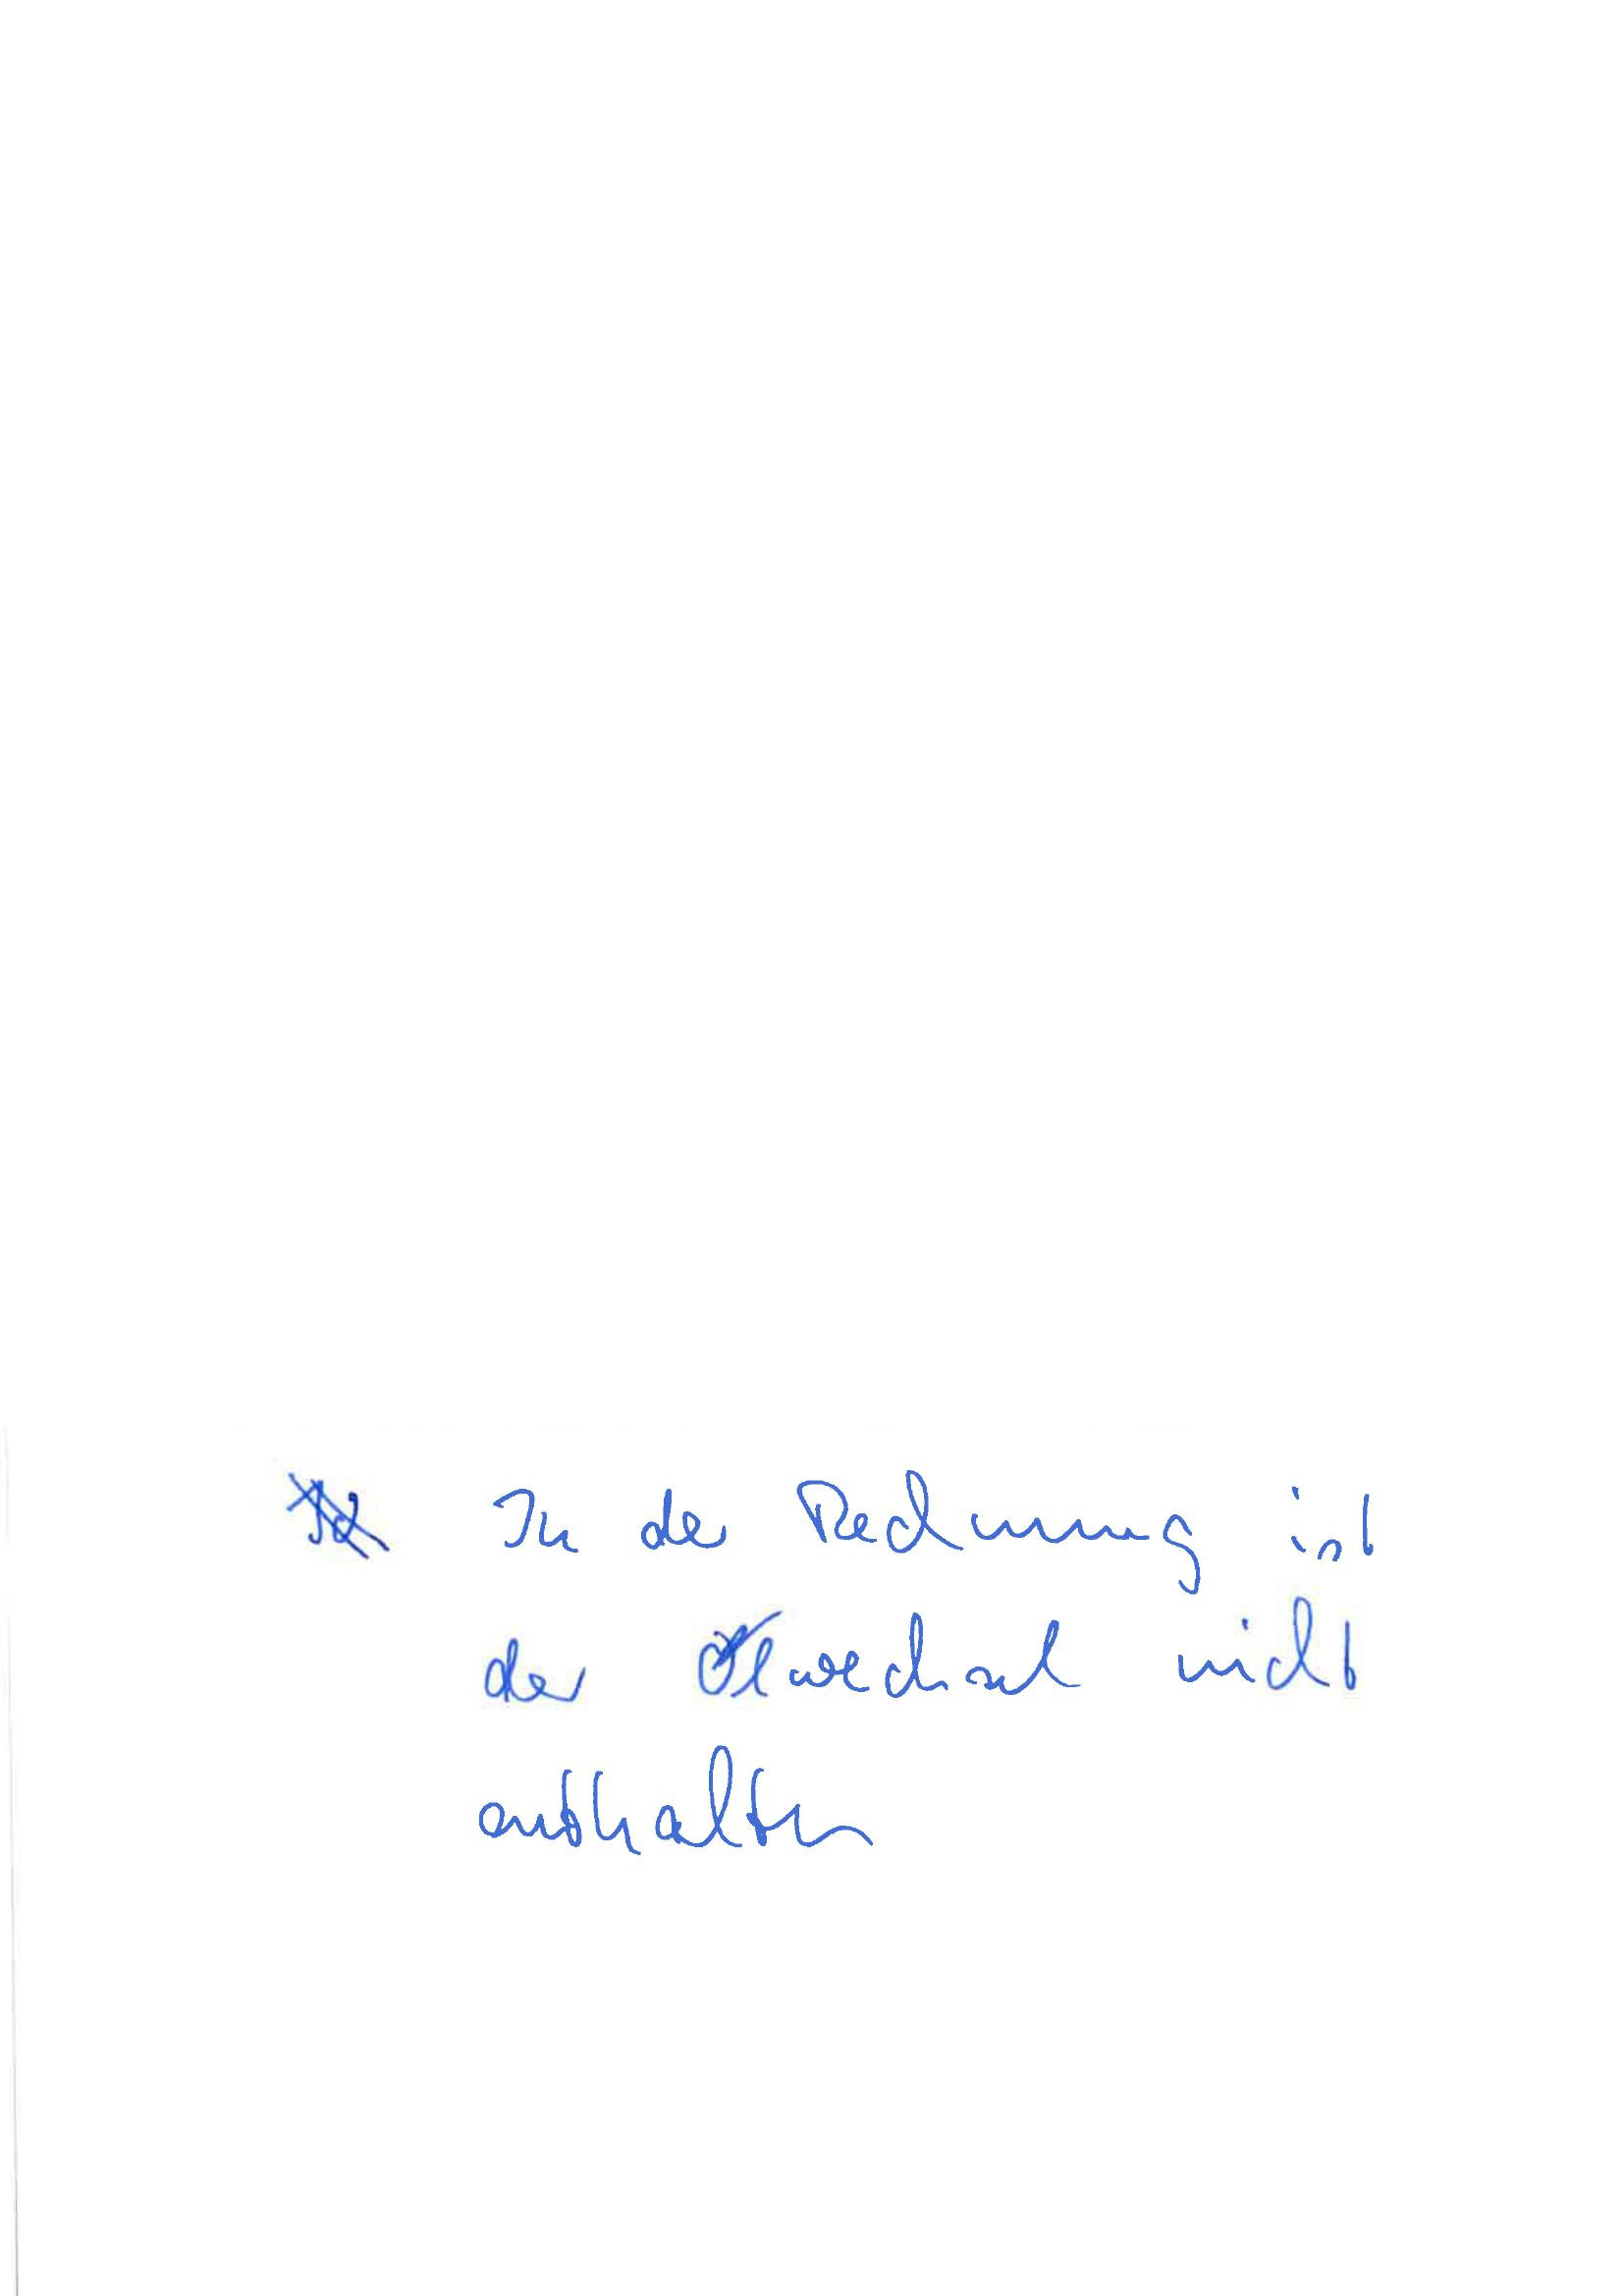 In der Rechnung ist
der Ölwechsel nicht
enthalten